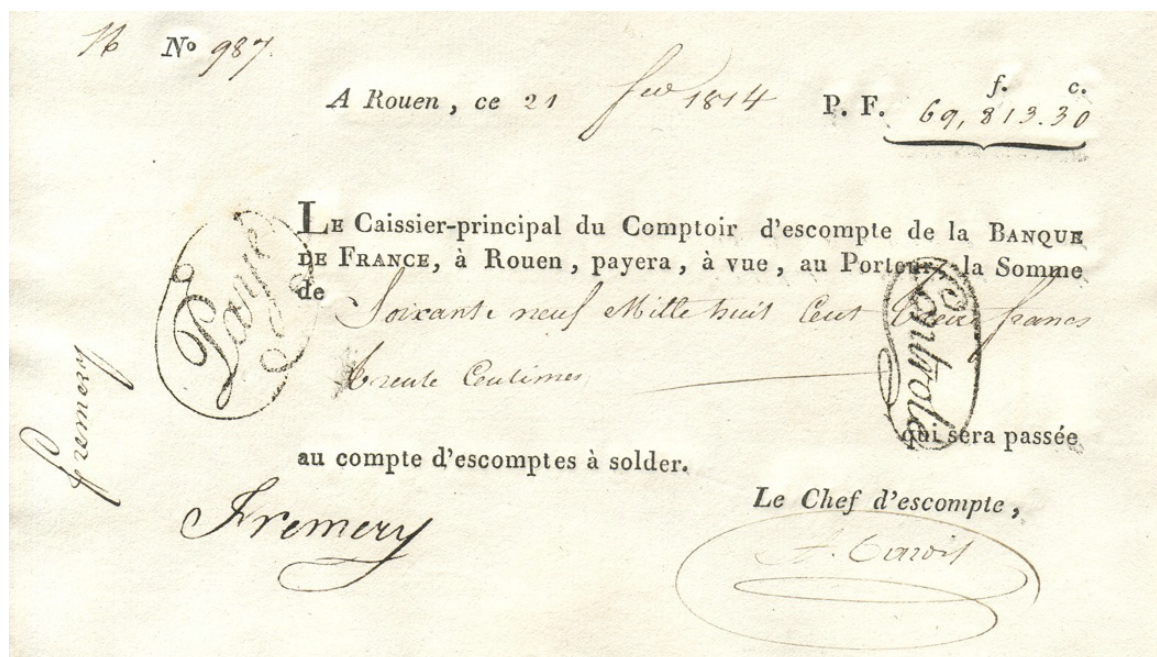 No 987.
A Rouen, ce 21 fev 1814 P. F. 69,813.30
f. c.
Payé
LE Caissier-principal du Comptoir d'escompte de la BANQUE
DE FRANCE, à Rouen, payera, à vue, au Porteur, la Somme
de Soixante neuf Mille huit Cent treize francs
trente Centimes
Contrôlé
qui sera passée
au compte d'escomptes à solder.
fremery
Fremery
Le Chef d'escompte,